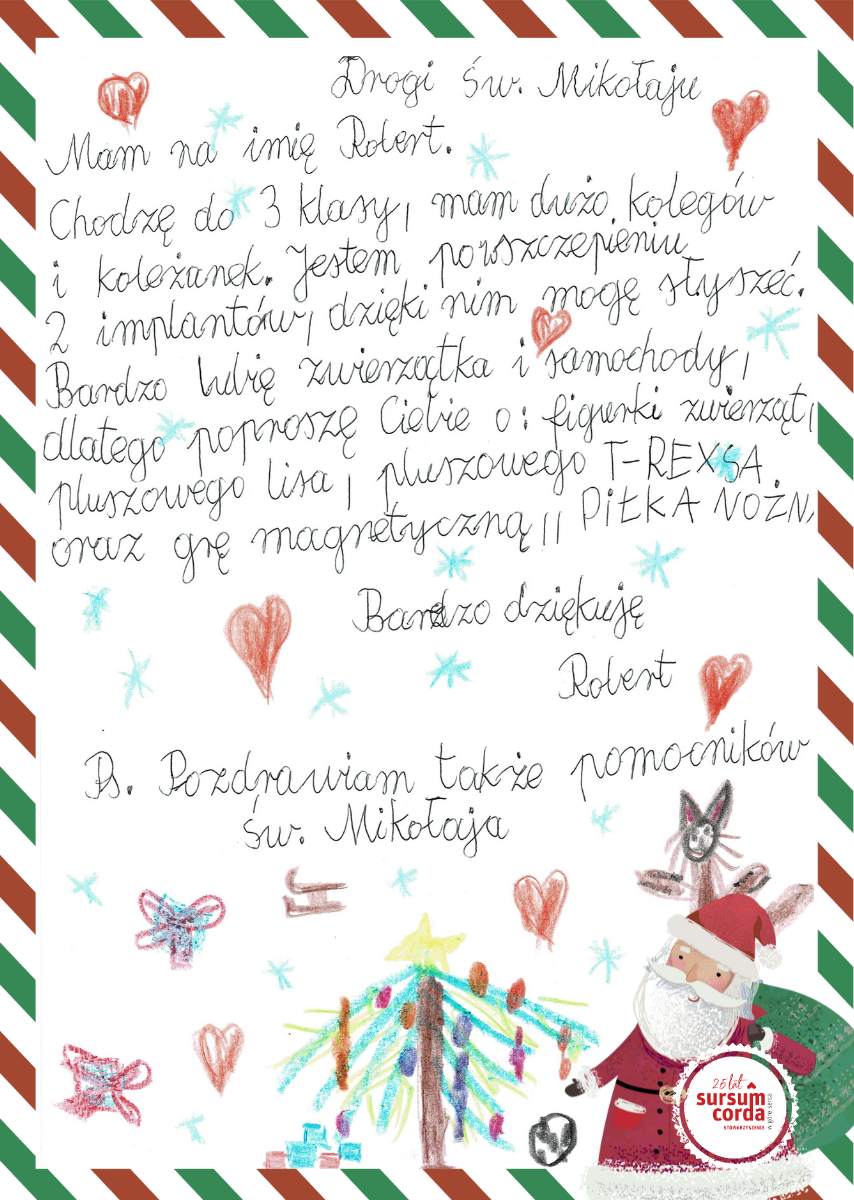 Drogi św. Mikołaju
Mam na imię Robert.
Chodzę do 3 klasy, mam dużo kolegów
i koleżanek. Jestem powszczepieniu
2 implantów, dzięki nim mogę słyszeć.
Bardzo lubię zwierzątka i samochody,
dlatego poproszę Ciebie o: figurki zwierząt,
pluszowego lisa, pluszowego T-REXSA
oraz grę magnetyczną,, PIŁKA NOŻN
Bardzo dziękuję
Robert
Ps. Pozdrawiam także pomocników
św. Mikołaja
25 lat
sursum
corda
STOWARZYSZENIE